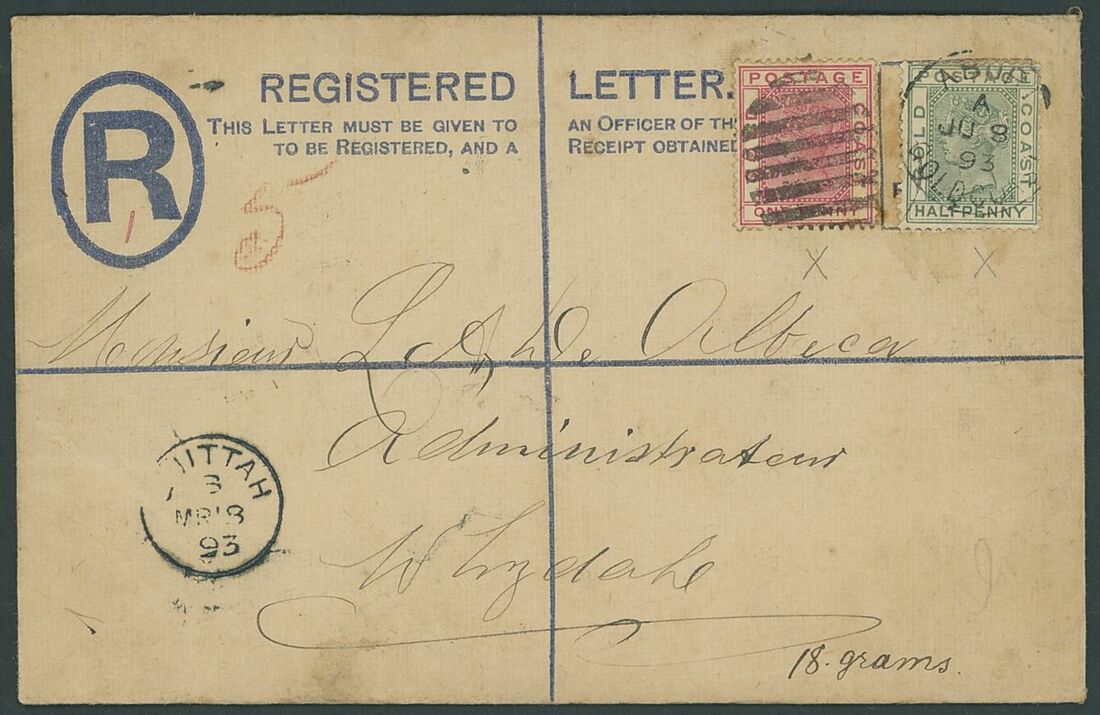 REGISTERED LETTER.
THIS LETTER MUST BE GIVEN TO AN OFFICER OF TH
TO BE REGISTERED, AND A RECEIPT OBTAINED
R
1
POSTAGE
GOLD COAST
ONE PENNY
POSTAGE
GOLD COAST
HALFPENNY
A
JU 8
93
F
X X
Monsieur L A De Albeca
Administrateur
Whydah
UITTAH
3
MR 18
93
18. grams.